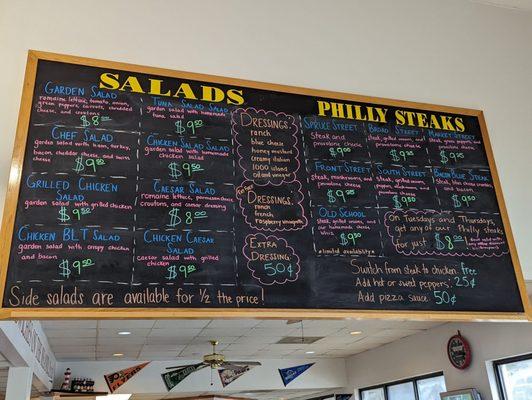 SALADS
GARDEN SALAD
romaine lettuce, tomato, onion,
green peppers, carrots, shredded
cheese, and croutons
$8.00
TUNA SALAD SALAD
garden salad with homemade
tuna salad
$9.50
CHEF SALAD
garden salad with ham, turkey,
bacon, cheddar cheese, and swiss
cheese
$9.50
CHICKEN SALAD SALAD
garden salad with homemade
chicken salad
$9.50
GRILLED CHICKEN
SALAD
garden salad with grilled chicken
$9.50
CAESAR SALAD
romaine lettuce, parmesan cheese,
croutons, and caesar dressing
$8.00
CHICKEN BLT SALAD
garden salad w/ crispy chicken
and bacon
$9.50
CHICKEN CAESAR
SALAD
caesar salad with grilled
chicken
$9.50
DRESSINGS:
ranch
blue cheese
honey mustard
creamy italian
1000 island
oil and vinegar
Fat Free
DRESSINGS:
ranch
french
raspberry vinaigrette
EXTRA
DRESSING
50¢
Side salads are available for ½ the price!
PHILLY STEAKS
SPRUCE STREET
steak and
provolone cheese
$9.00
BROAD STREET
steak, grilled onions, and
provolone cheese
MARKET STREET
FRONT STREET
steak, mushrooms, and
provolone cheese
SOUTH STREET
BACON BLUE STEAK
OLD SCHOOL
*LIMITED AVAILABILITY
On Tuesdays and Thursdays,
get any of our Philly steaks
for just $8.00
Switch from steak to chicken: free
Add hot or sweet peppers: 25¢
Add pizza sauce: 50¢